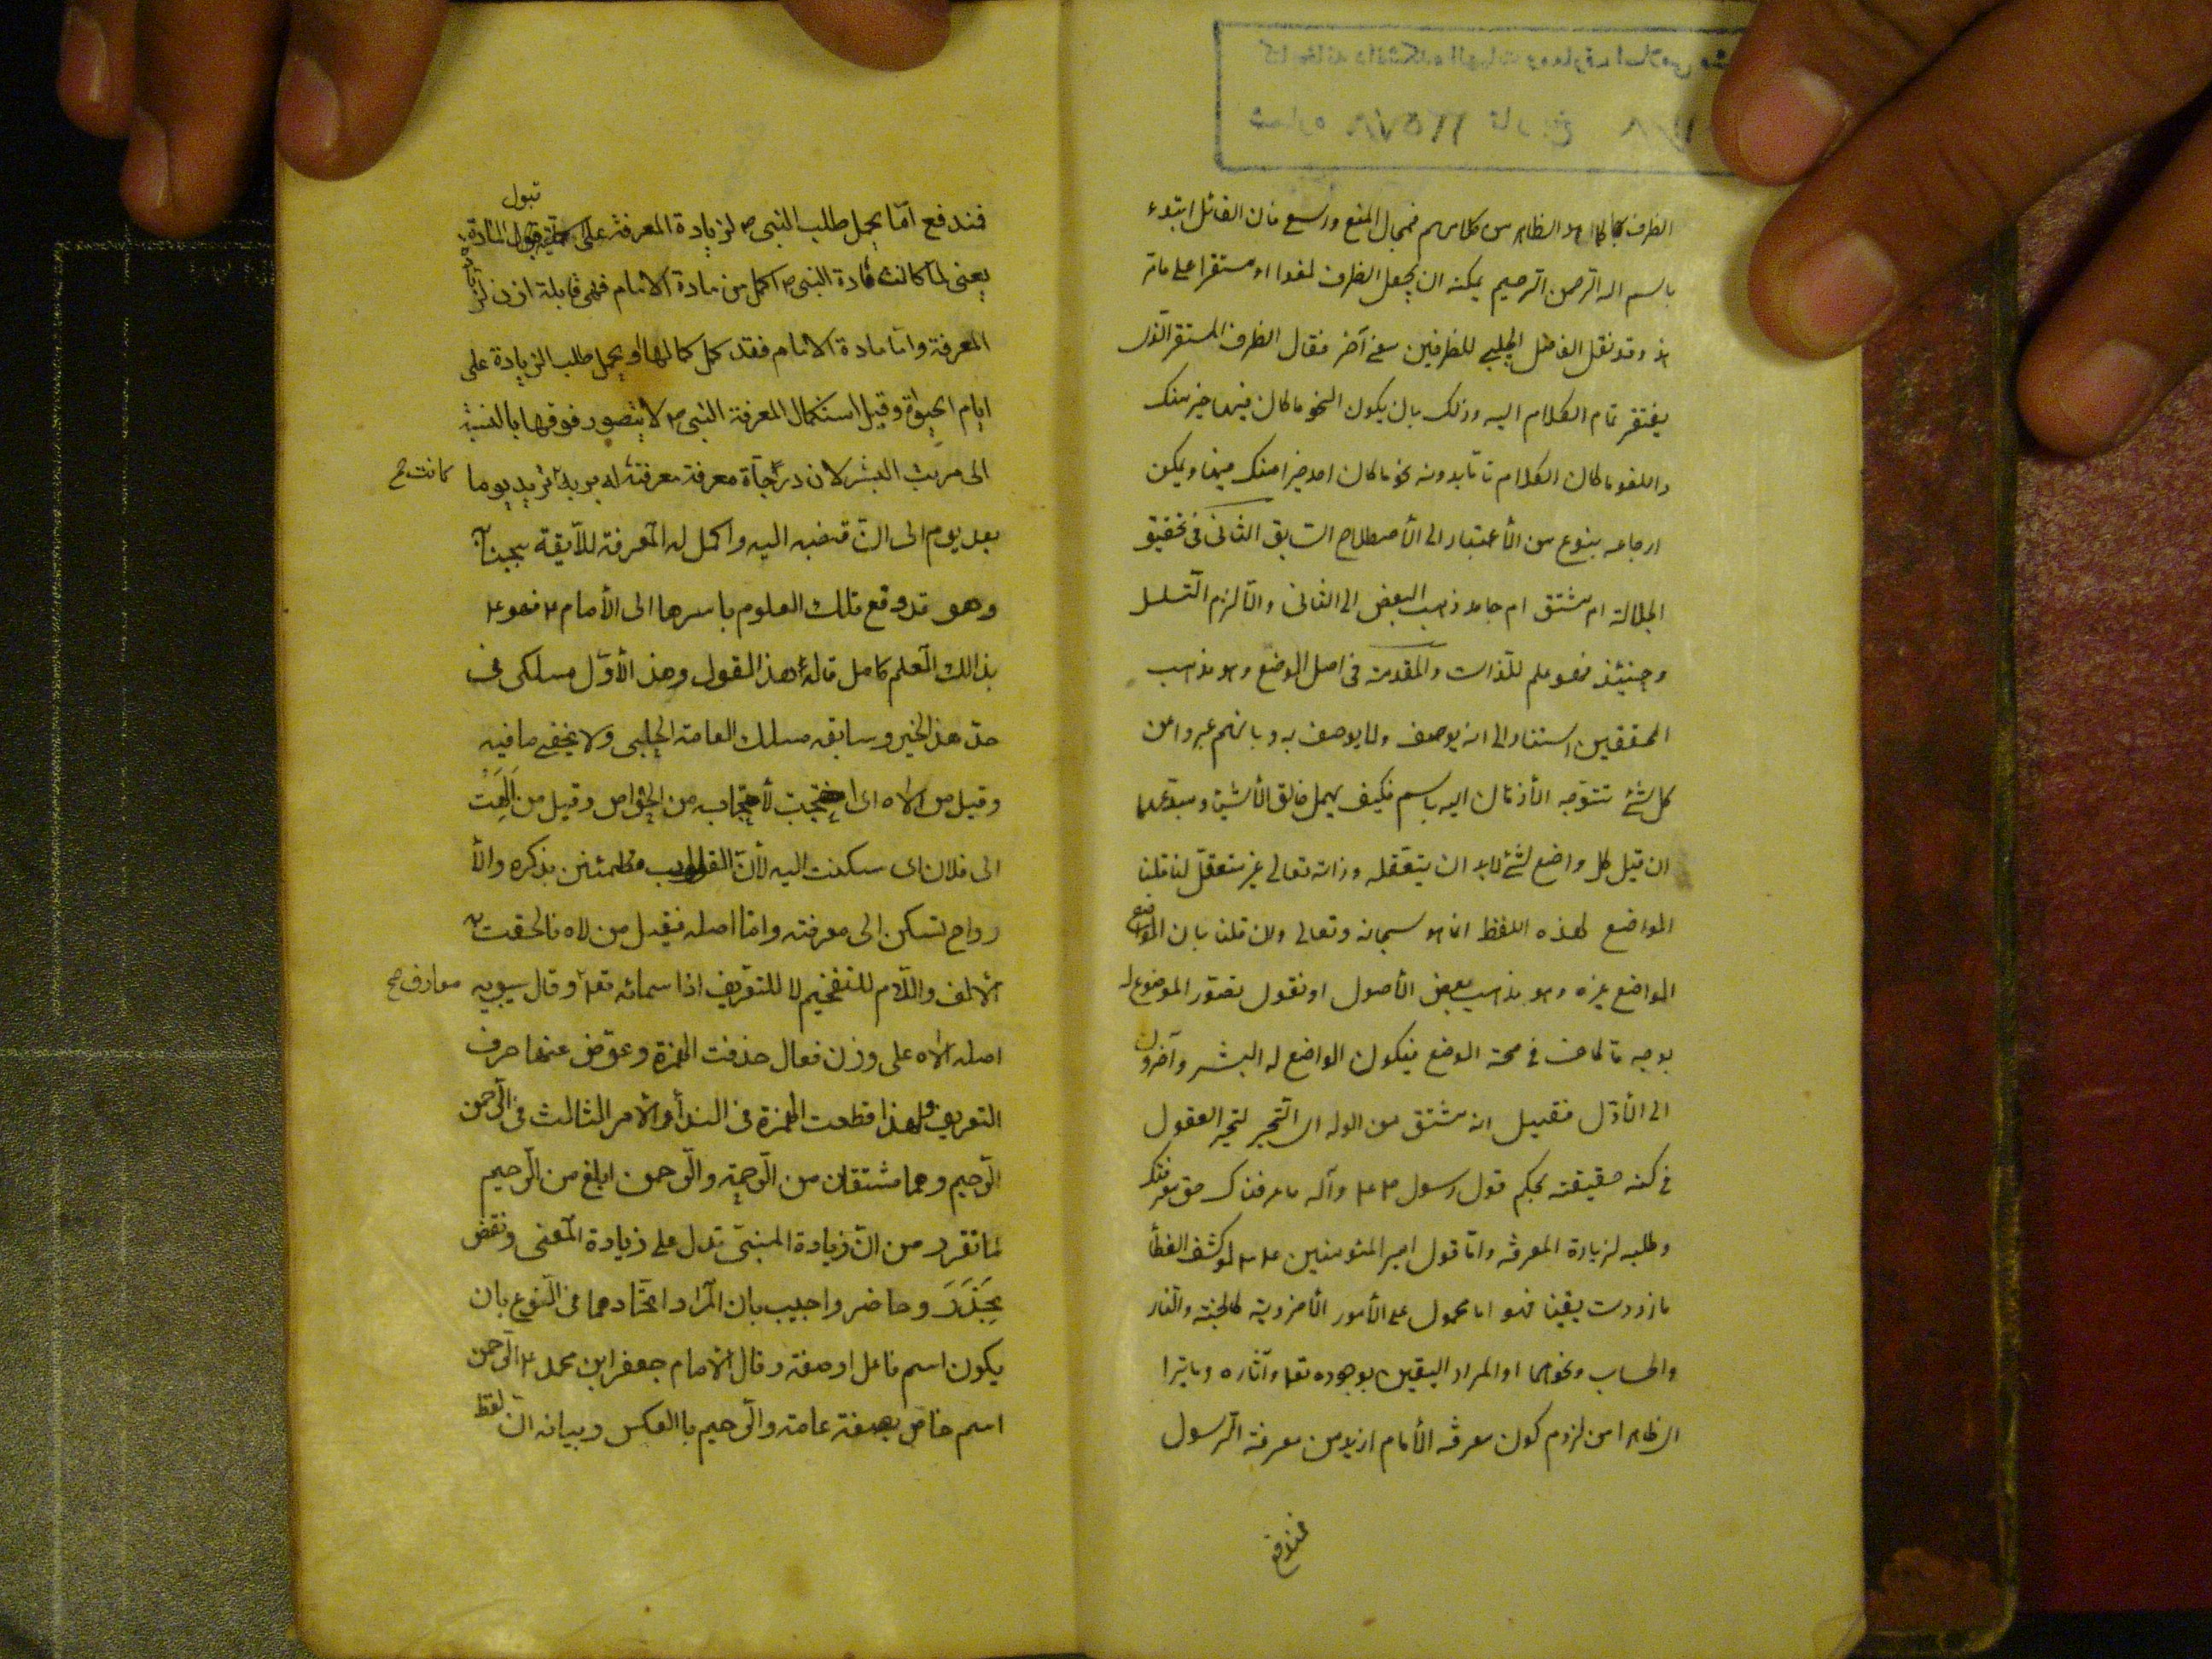 الظرف كما هو الظاهر من كلامهم فمجال المنع واسع فان القائل ابتدء
باسم الله الرحمن الرحيم يمكنه ان يجعل الظرف لغوا او مستقرا على ما مر
هذا وقد نقل الفاضل الچلبي للظرفين معنى آخر فقال الظرف المستقر الذى
يفتقر تمام الكلام اليه وذلك بان يكون النحو ما كان فيها خير منك
واللغو ما كان الكلام تاما بدونه نحو ما كان احد خيرا منك فيها ويمكن
ارجاعه بنوع من الأعتبار الى الأصطلاح السابق الثانى فى تحقيق
الجلالة ام مشتق ام جامد ذهب البعض الى الثانى والا لزم التسلسل
وحينئذ فهو علم للذات المقدسة فى اصل الوضع وهو مذهب
المحققين استنادا الى انه يوصف ولا يوصف به وبانهم عبروا عن
كل شئ تتوجه الأذهان اليه باسم فكيف يهمل خالق الأشياء ومبدعها
ان قيل كل واضع لشئ لابد ان يتعقله وذاته تعالى غير متعقل لنا قلنا
الواضع لهذه اللفظ انما هو سبحانه وتعالى ولان قلنا بان الواضع
الواضع غيره وهو مذهب بعض الأصول او نقول تصور الموضوع له
بوجه ما كاف فى صحة الوضع فيكون الواضع له البشر وآخرون
الى الأول فقيل انه مشتق من الوله اى التحير لتحير العقول
فى كنه حقيقته بحكم قول رسول ص ع وآله ما عرفناك حق معرفتك
وطلبه لزيادة المعرفة واما قول امير المؤمنين ع لو كشف الغطأ
ما ازددت يقينا فهو اما محمول على الأمور الأخروية كالجنة والنار
والحساب ونحوهما او المراد اليقين بوجوده تع وآثاره وما يترا
الظاهرا من لزوم كون معرفة الأمام ازيد من معرفة الرسول
فندفع
قبول
فندفع اما يحمل طلب النبى ص لزيادة المعرفة على قبول المادة
يعنى لما كانت مادة النبى ص اكمل من مادة الامام فهى قابلة اذن لزيادة
المعرفة واما مادة الامام فقد كمل كمالها او يحمل طلب الزيادة على
ايام الحيوة وقيل استكمال المعرفة النبى ص لا يتصور فوقها بالنسبة
الى مرتبة البشر لان درجاة معرفة معرفته له بربه تزيد يوما
كانت صح
بعد يوم الى ان قبضه اليه واكمل له المعرفة اللآيقة بجنابه
وهو قد وقع تلك العلوم باسرها الى الأمام ع فهو ع
بذالك العلم كامل قاله هذا القول وهذ الأول مسلكى فى
حل هذ الخبر وسابقه مسلك العامة الچلبى ولا يخفى ما فيه
وقيل من الاه اى احتجبت لأحتجابه من الحواس وقيل من الهت
الى فلان اى سكنت اليه لأن القلوب مطمئنن بذكره والأ
رواح تسكن الى معرفته واما اصله فقيل من لاه فالحقت به
الألف واللام للتفخيم لا للتعريف اذا سمائه تع وقال سيبويه
معارف صح
اصله الاه على وزن فعال حذفت الهمزة وعوض عنها حرف
التعريف ولهذا قطعت الهمزة فى الندأ والأمر الثالث فى الرحمن
الرحيم وهما مشتقان من الرحمة والرحمن ابلغ من الرحيم
لما تقرر من ان زيادة المبنى تدل على زيادة المعنى ونقض
بحذر وحاضر واجيب بان المراد اتحادهما فى النوع بان
يكون اسم فاعل او صفة وقال الامام جعفر ابن محمد ع الرحمن
اسم خاص بصفة عامة والرحيم باالعكس وبيانه ان لفظ